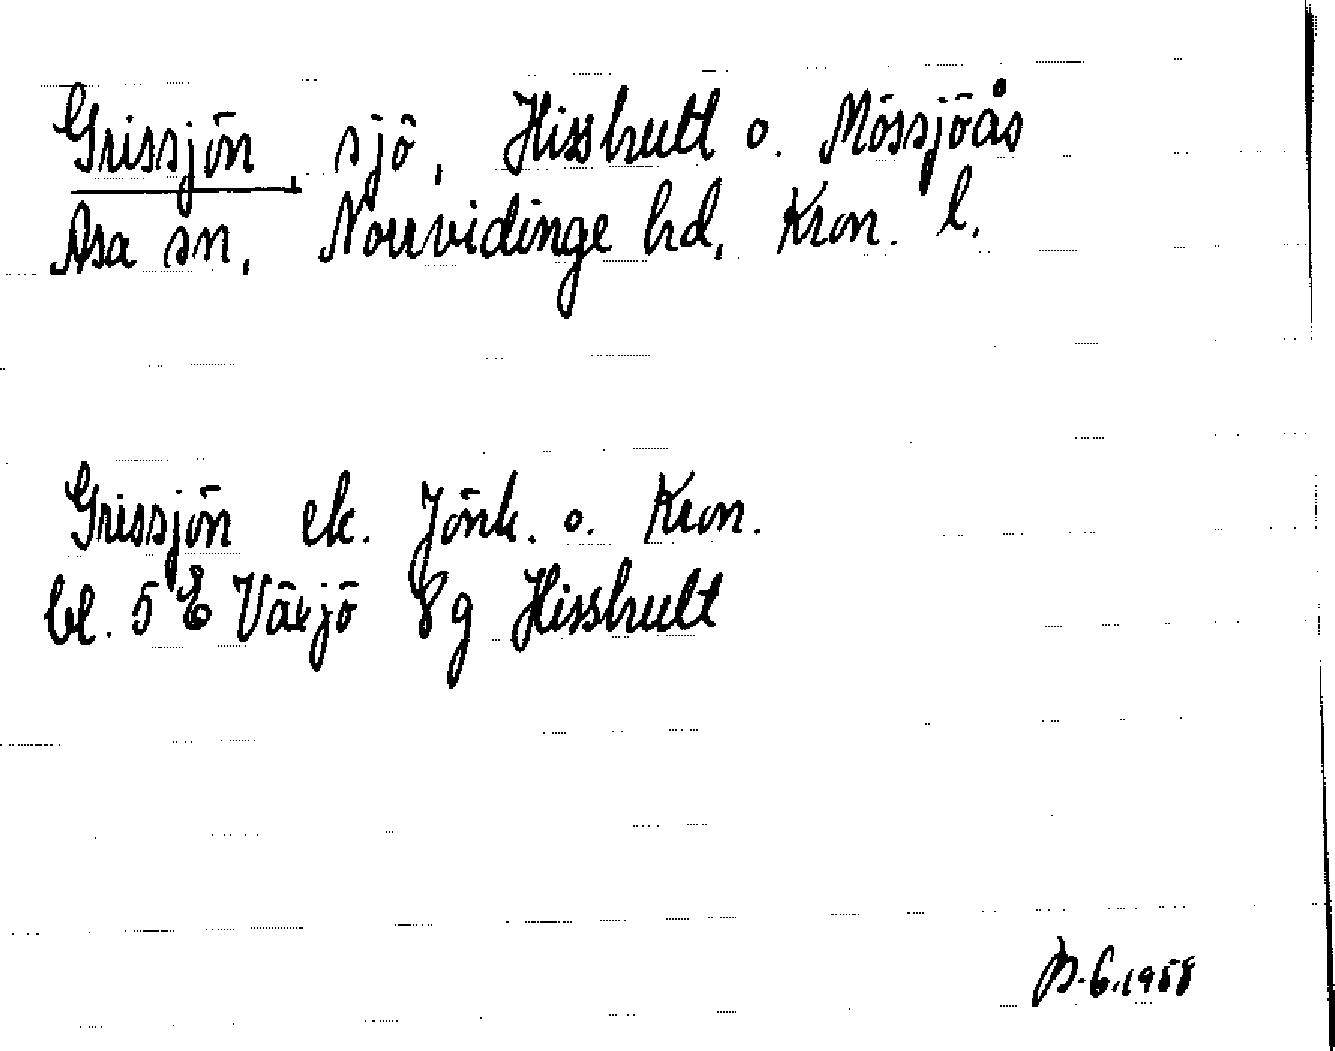 Grissjön, sjö, Hisshult o. Mössjöås
Asa sn, Norrvidinge hd, Kron. l.
Grissjön ek. Jönk. o. Kron.
bl. 5 E Växjö 8g Hisshult
B. G. 1958